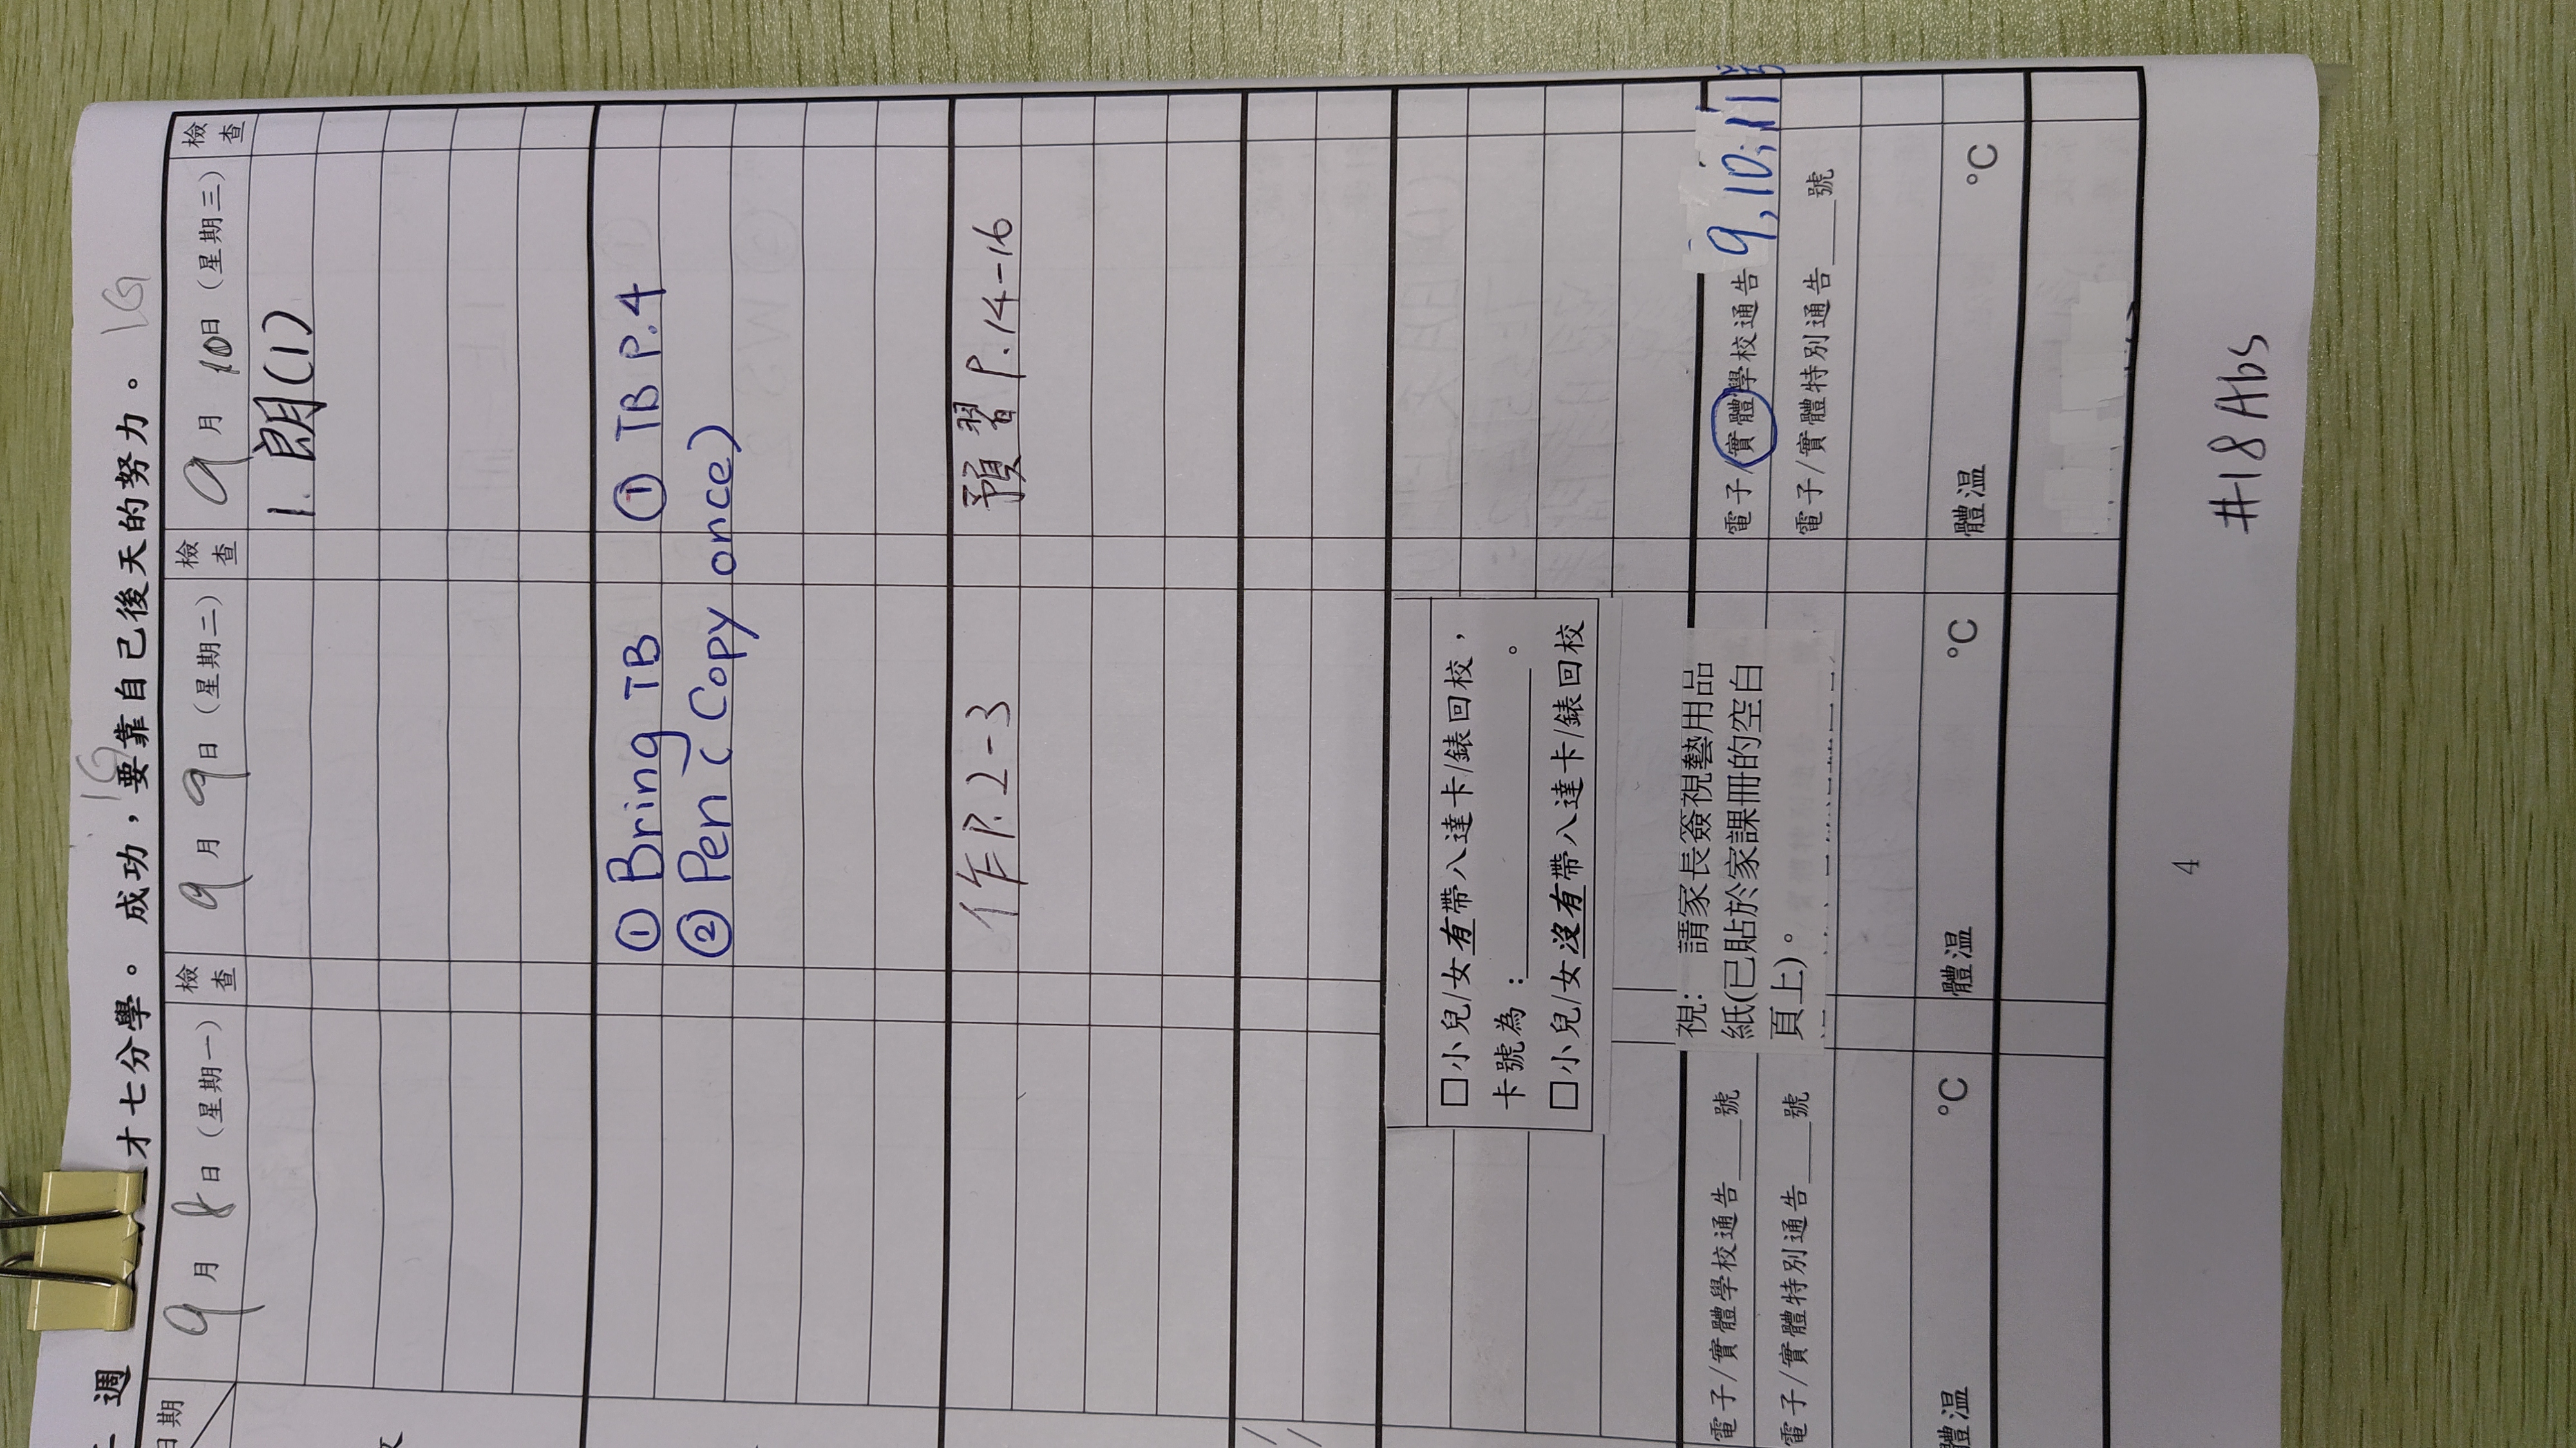 週
才七分學。成功，要靠自己後天的努力。
日期
9月8日（星期一）
檢查
9月9日（星期二）
檢查
9月10日（星期三）
檢查
1.朗(1)
① Bring TB
② Pen(Copy once)
① TB P.4
作P.2-3
預習 P.14-16
□小兒/女有帶八達卡/錶回校，
卡號為：＿＿＿＿。
□小兒/女沒有帶八達卡/錶回校
電子/實體學校通告＿＿號
電子/實體特別通告＿＿號
視: 請家長簽視藝用品
紙(已貼於家課冊的空白
頁上)。
電子/實體學校通告 9,10,11號
電子/實體特別通告＿＿號
體温 °C
體温 °C
體温 °C
4
#18 Abs